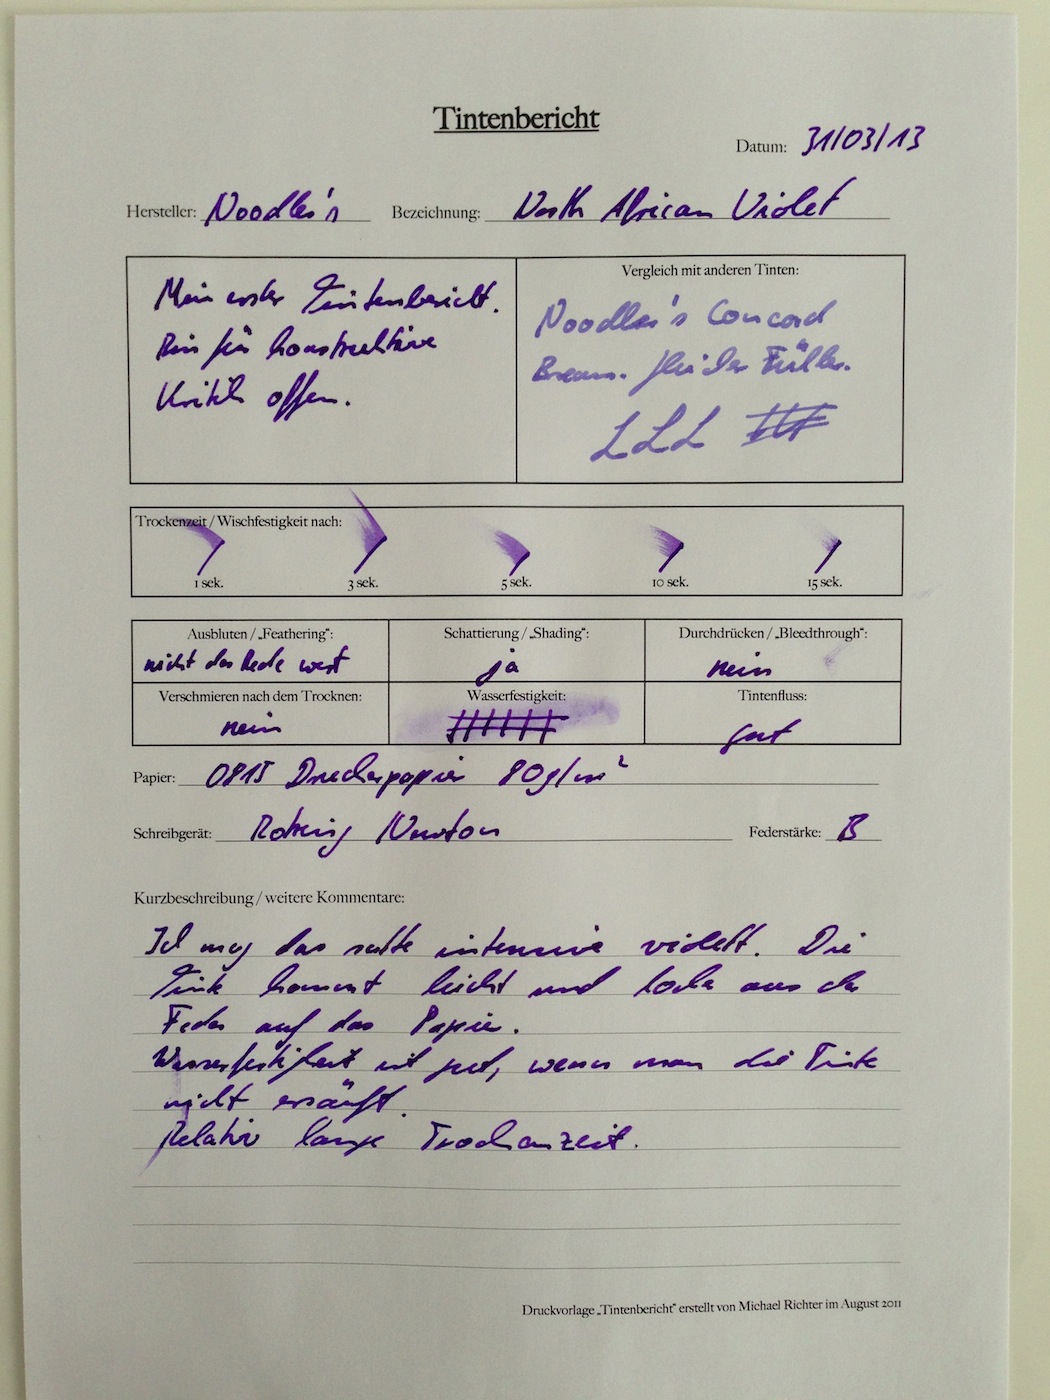 Tintenbericht
Datum: 31/03/13
Hersteller: Noodler's Bezeichnung: North African Violet
Mein erster Tintenbericht.
Bin für konstruktive
Kritik offen.
Vergleich mit anderen Tinten:
Noodler's Concord
Bream. gleicher Füller.
LLL
Trockenzeit / Wischfestigkeit nach:
1 sek. 3 sek. 5 sek. 10 sek. 15 sek.
Ausbluten / „Feathering“: Schattierung / „Shading“: Durchdrücken / „Bleedthrough“:
nicht der Rede wert ja nein
Verschmieren nach dem Trocknen: Wasserfestigkeit: Tintenfluss:
nein gut
Papier: 0815 Druckerpapier 80g/m²
Schreibgerät: Rotring Newton Federstärke: B
Kurzbeschreibung / weitere Kommentare:
Ich mag das satte intensive violett. Die
Tinte kommt leicht und locker aus der
Feder auf das Papier.
Wasserfestigkeit ist gut, wenn man die Tinte
nicht ersäuft.
Relativ lange Trockenzeit.
Druckvorlage „Tintenbericht“ erstellt von Michael Richter im August 2011